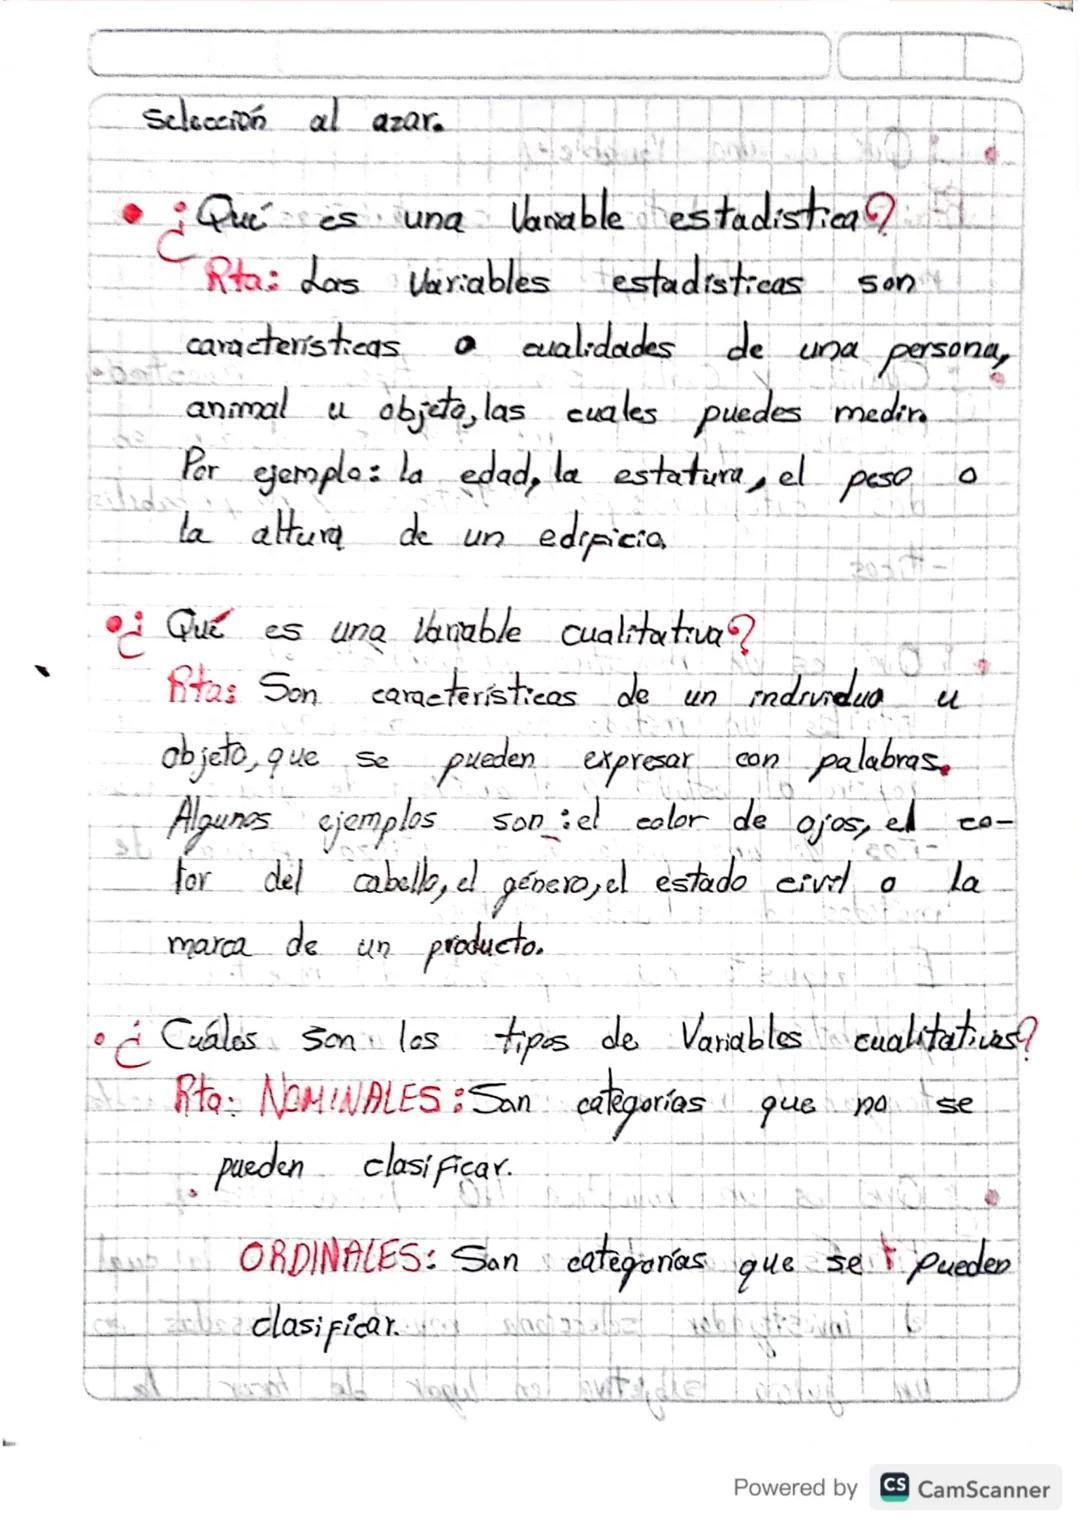 selección al azar.
• ¿Qué es una Variable estadística?
Rta: Las Variables estadísticas son
características o cualidades de una persona,
animal u objeto, las cuales puedes medir.
Por ejemplo: la edad, la estatura, el peso o
la altura de un edificio.
• ¿Qué es una Variable cualitativa?
Rta: Son características de un individuo u
objeto, que se pueden expresar con palabras.
Algunos ejemplos son: el color de ojos, el co-
lor del cabello, el género, el estado civil o la
marca de un producto.
• ¿Cuáles son los tipos de Variables cualitativas?
Rta: NOMINALES: Son categorías que no se
pueden clasificar.
ORDINALES: Son categorías que se pueden
clasificar.
Powered by CS CamScanner